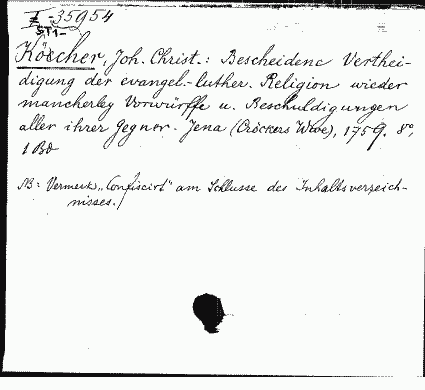 I -35954
Köcher, Joh. Christ.: Bescheidene Verthei-
digung der evangel.-luther. Religion wieder
mancherley Vorwürffe u. Beschuldigungen
aller ihrer Gegner. Jena (Cröckers Wwe), 1759. 8°,
1 Bd
NB: Vermerk „Confiscirt" am Schlusse des Inhaltsverzeich-
nisses.)